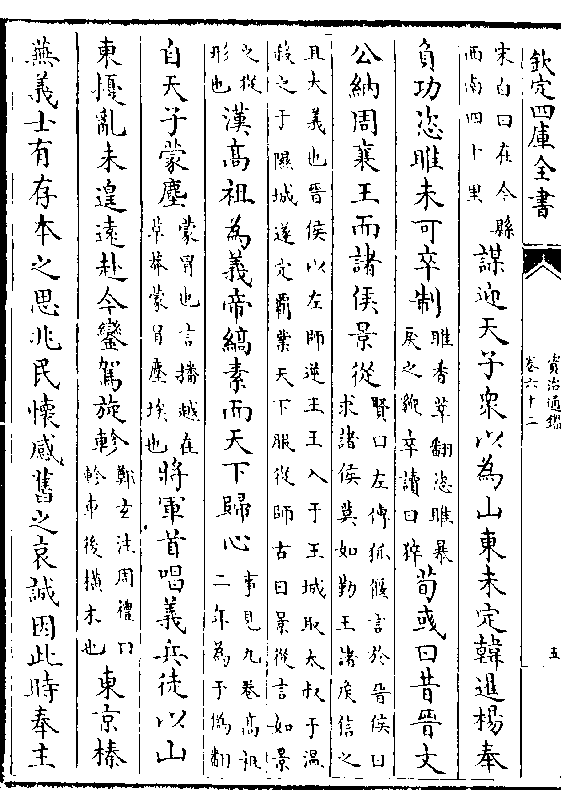 欽定四庫全書
資治通鑑
卷六十二
五
宋白曰在今縣
西南四十里
謀迎天子衆以為山東未定韓暹楊奉
負功恣睢未可卒制
睢香萃翻恣睢暴
戾之貌卒讀曰猝
荀彧曰昔晉文
公納周襄王而諸侯景從
賢曰左傳狐偃言於晉侯曰
求諸侯莫如勤王諸侯信之
且大義也晉侯以左師逆王王入于王城取太叔于溫
殺之于隰城遂定霸業天下服從師古曰景從言如景
之從
形也
漢高祖為義帝縞素而天下歸心
事見九卷高祖
二年為于偽翻
自天子蒙塵
蒙冒也言播越在
草莽蒙冒塵埃也
將軍首唱義兵徒以山
東擾亂未遑遠赴今鑾駕旋軫
鄭玄注周禮曰
軫車後橫木也
東京榛
蕪義士有存本之思兆民懷感舊之哀誠因此時奉主